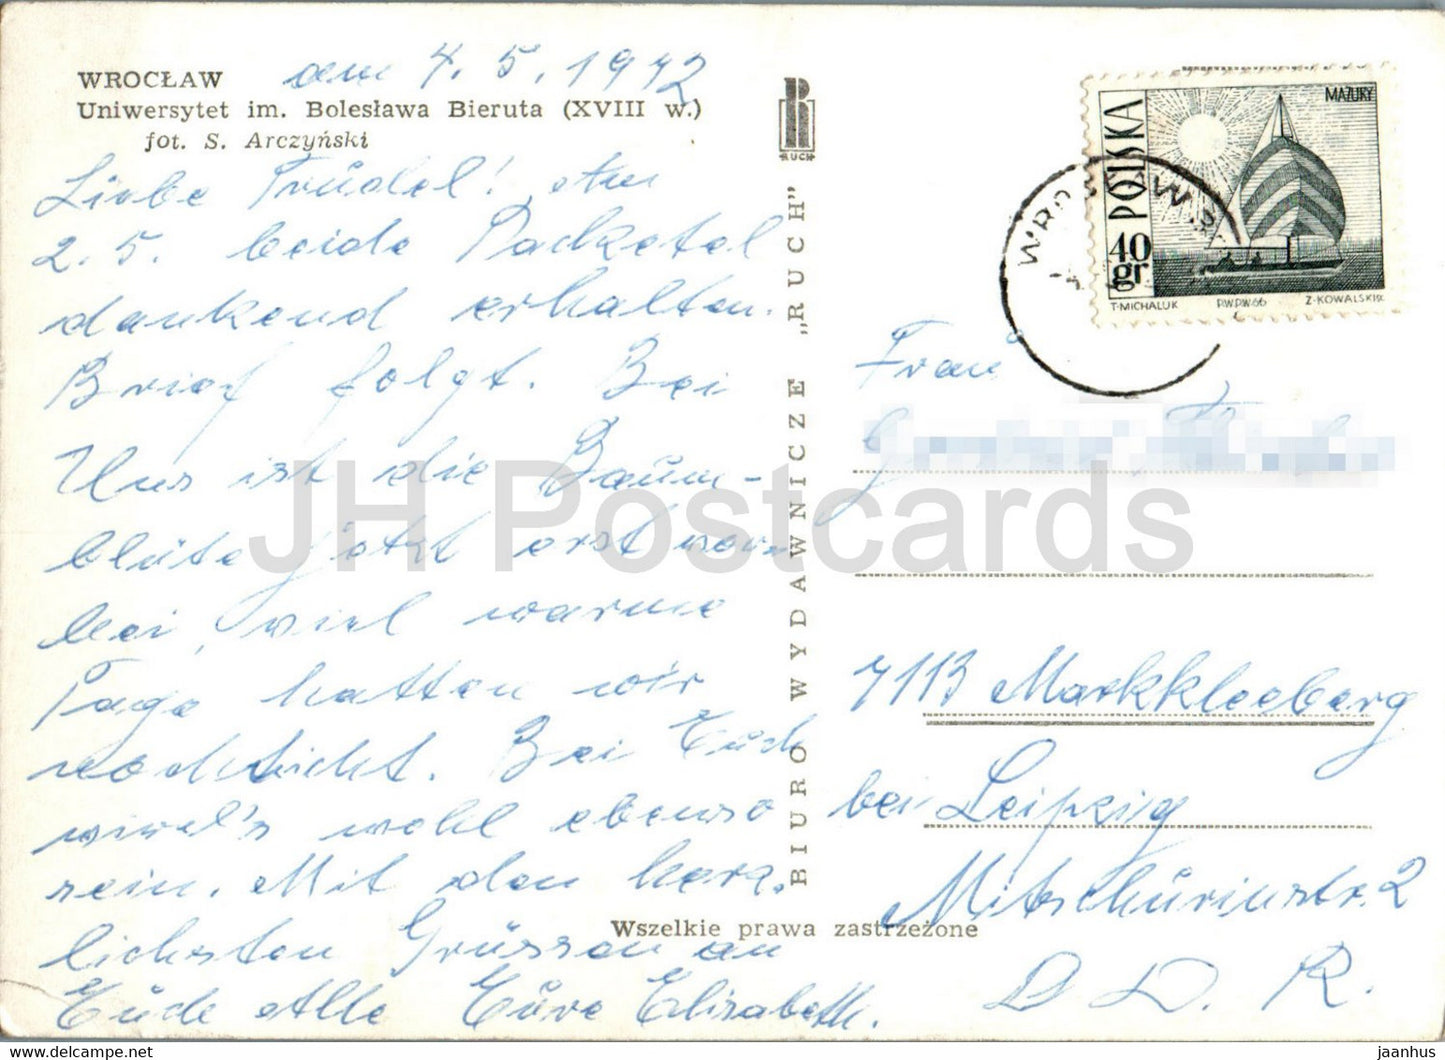 WROCŁAW am 4. 5. 1972
Uniwersytet im. Bolesława Bieruta (XVIII w.)
fot. S. Arczyński
Liebe Trüdel! Am
2. 5. beide Packetel
dankend erhalten.
Brief folgt. Bei
Uns ist die Baum-
blüte jetzt erst vor-
bei, viel warme
Tage hatten wir
noch nicht. Bei Euch
wird's wohl ebenso
sein. Mit den herz-
lichsten Grüssen an
Euch Alle Eure Elisabeth.
RUCH
BIURO WYDAWNICZE „RUCH"
Wszelkie prawa zastrzeżone
POLSKA
40 gr
MAZURY
T·MICHALUK P.W.P.W.66 Z·KOWALSKI
WROCŁAW
Frau
7113 Markkleeberg
bei Leipzig
Mitschürinstr. 2
D. D. R.
JH Postcards
https://www.ebay.com/usr/jaanhus
jaanhus